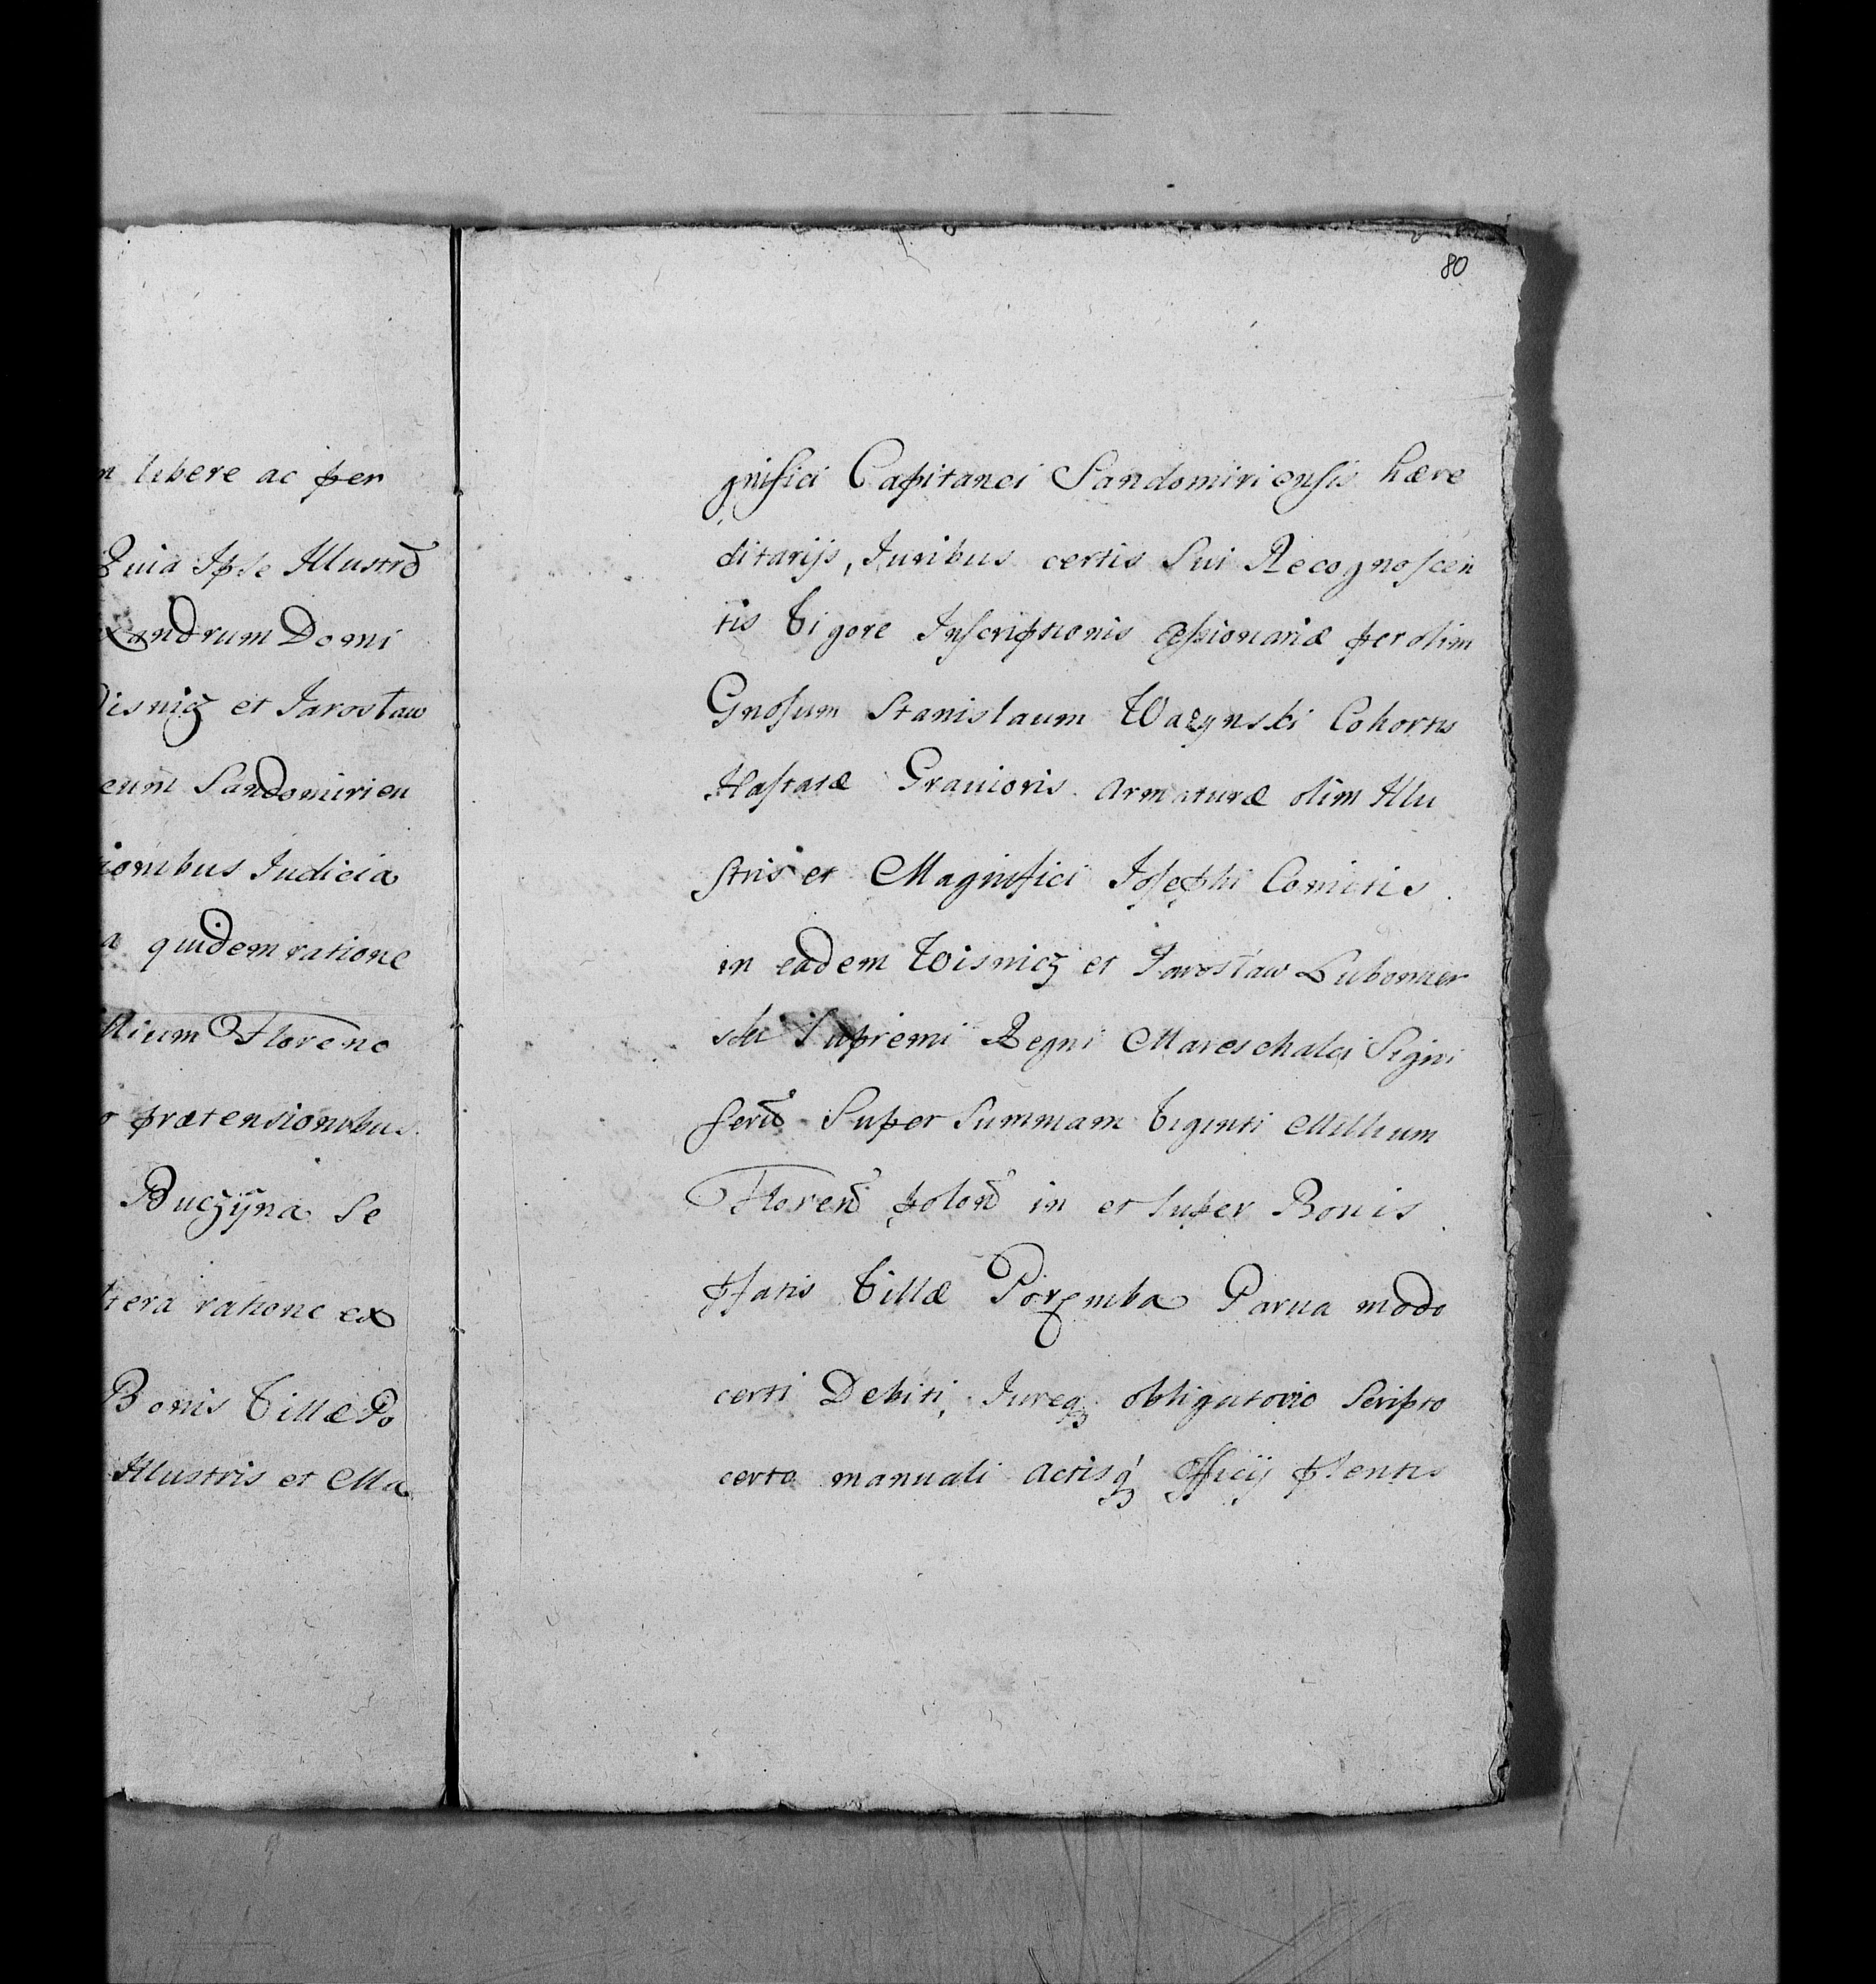 n libere ac per
Quia Ipse Illustrem
xandrum Domi
isnicz et Jarosław
eum Sandomirien
ionibus Judicia
a quidem ratione
llium Florenc
o prætensionibus
Buczyna Se
tera ratione ex
Bonis Villæ Po
Illustris et Ma
80
gnifici Capitanei Sandomiriensis hære
ditarijs, Juribus certis Sui Recognoscen
tis Vigore Inscriptionis cessionariæ per olim
Gnosum Stanislaum Wazynski Cohortis
Hastatæ Gravioris armaturæ olim Illu
stris et Magnifici Josephi Comitis
in eadem Wisnicz et Jarosław Lubomier
ski Supremi Regni Mareschalci Signi
ferū Super Summam Viginti Millium
Floren̄ polon̄ in et super Bonis
pfatis Villæ Poręmba Parva modo
certi Debiti, Jureq; obligatorio Scripto
certo manuali actisq; Officij pſentis